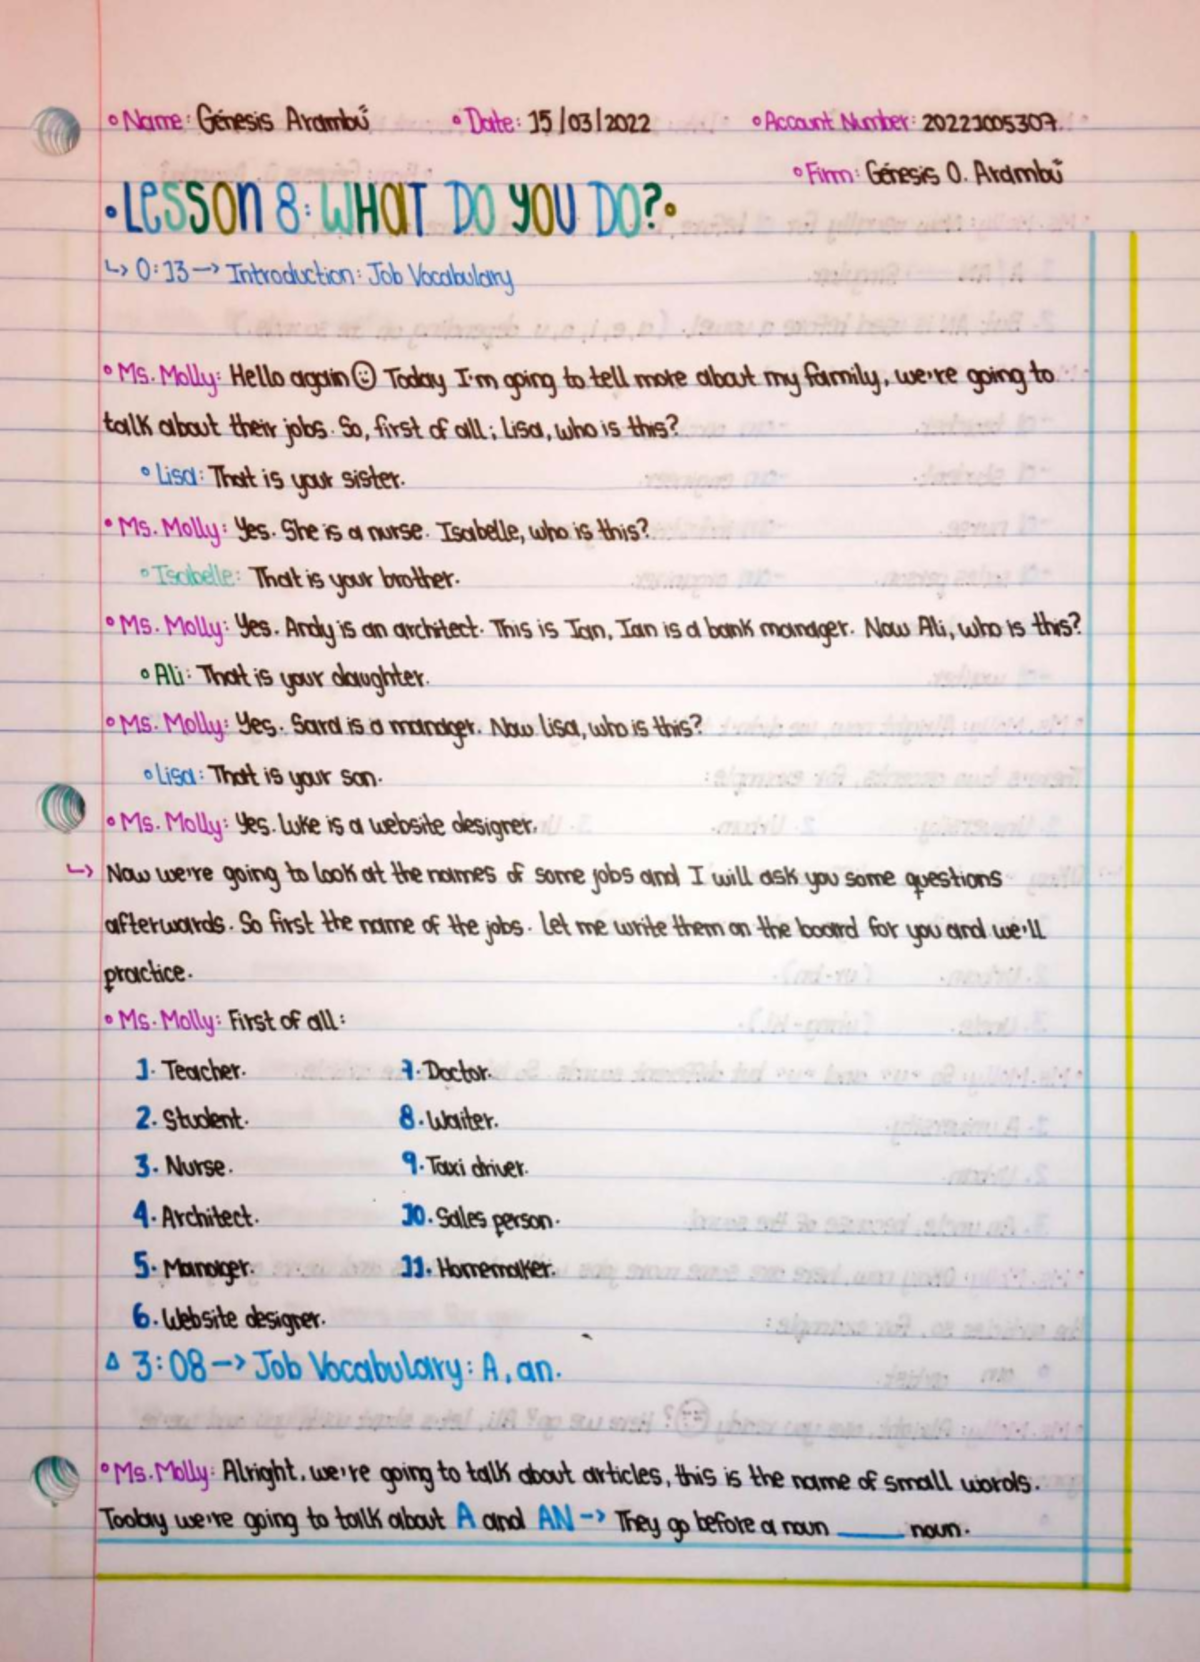 • Name: Génesis Arambú • Date: 15/03/2022 • Account Number: 20221005307.
• Firm: Génesis O. Arambú
• LESSON 8: WHAT DO YOU DO? •
↳ 0:13 → Introduction: Job Vocabulary
• Ms. Molly: Hello again ☺ Today I'm going to tell more about my family, we're going to
talk about their jobs. So, first of all; Lisa, who is this?
• Lisa: That is your sister.
• Ms. Molly: Yes. She is a nurse. Isabelle, who is this?
• Isabelle: That is your brother.
• Ms. Molly: Yes. Andy is an architect. This is Ian, Ian is a bank manager. Now Ali, who is this?
• Ali: That is your daughter.
• Ms. Molly: Yes. Sara is a manager. Now Lisa, who is this?
• Lisa: That is your son.
• Ms. Molly: Yes. Luke is a website designer.
↳ Now we're going to look at the names of some jobs and I will ask you some questions
afterwards. So first the name of the jobs. Let me write them on the board for you and we'll
practice.
• Ms. Molly: First of all:
1. Teacher. 7. Doctor.
2. Student. 8. Waiter.
3. Nurse. 9. Taxi driver.
4. Architect. 10. Sales person.
5. Manager. 11. Homemaker.
6. Website designer.
∆ 3:08 → Job Vocabulary: A, an.
• Ms. Molly: Alright, we're going to talk about articles, this is the name of small words.
Today we're going to talk about A and AN → They go before a noun ____ noun.